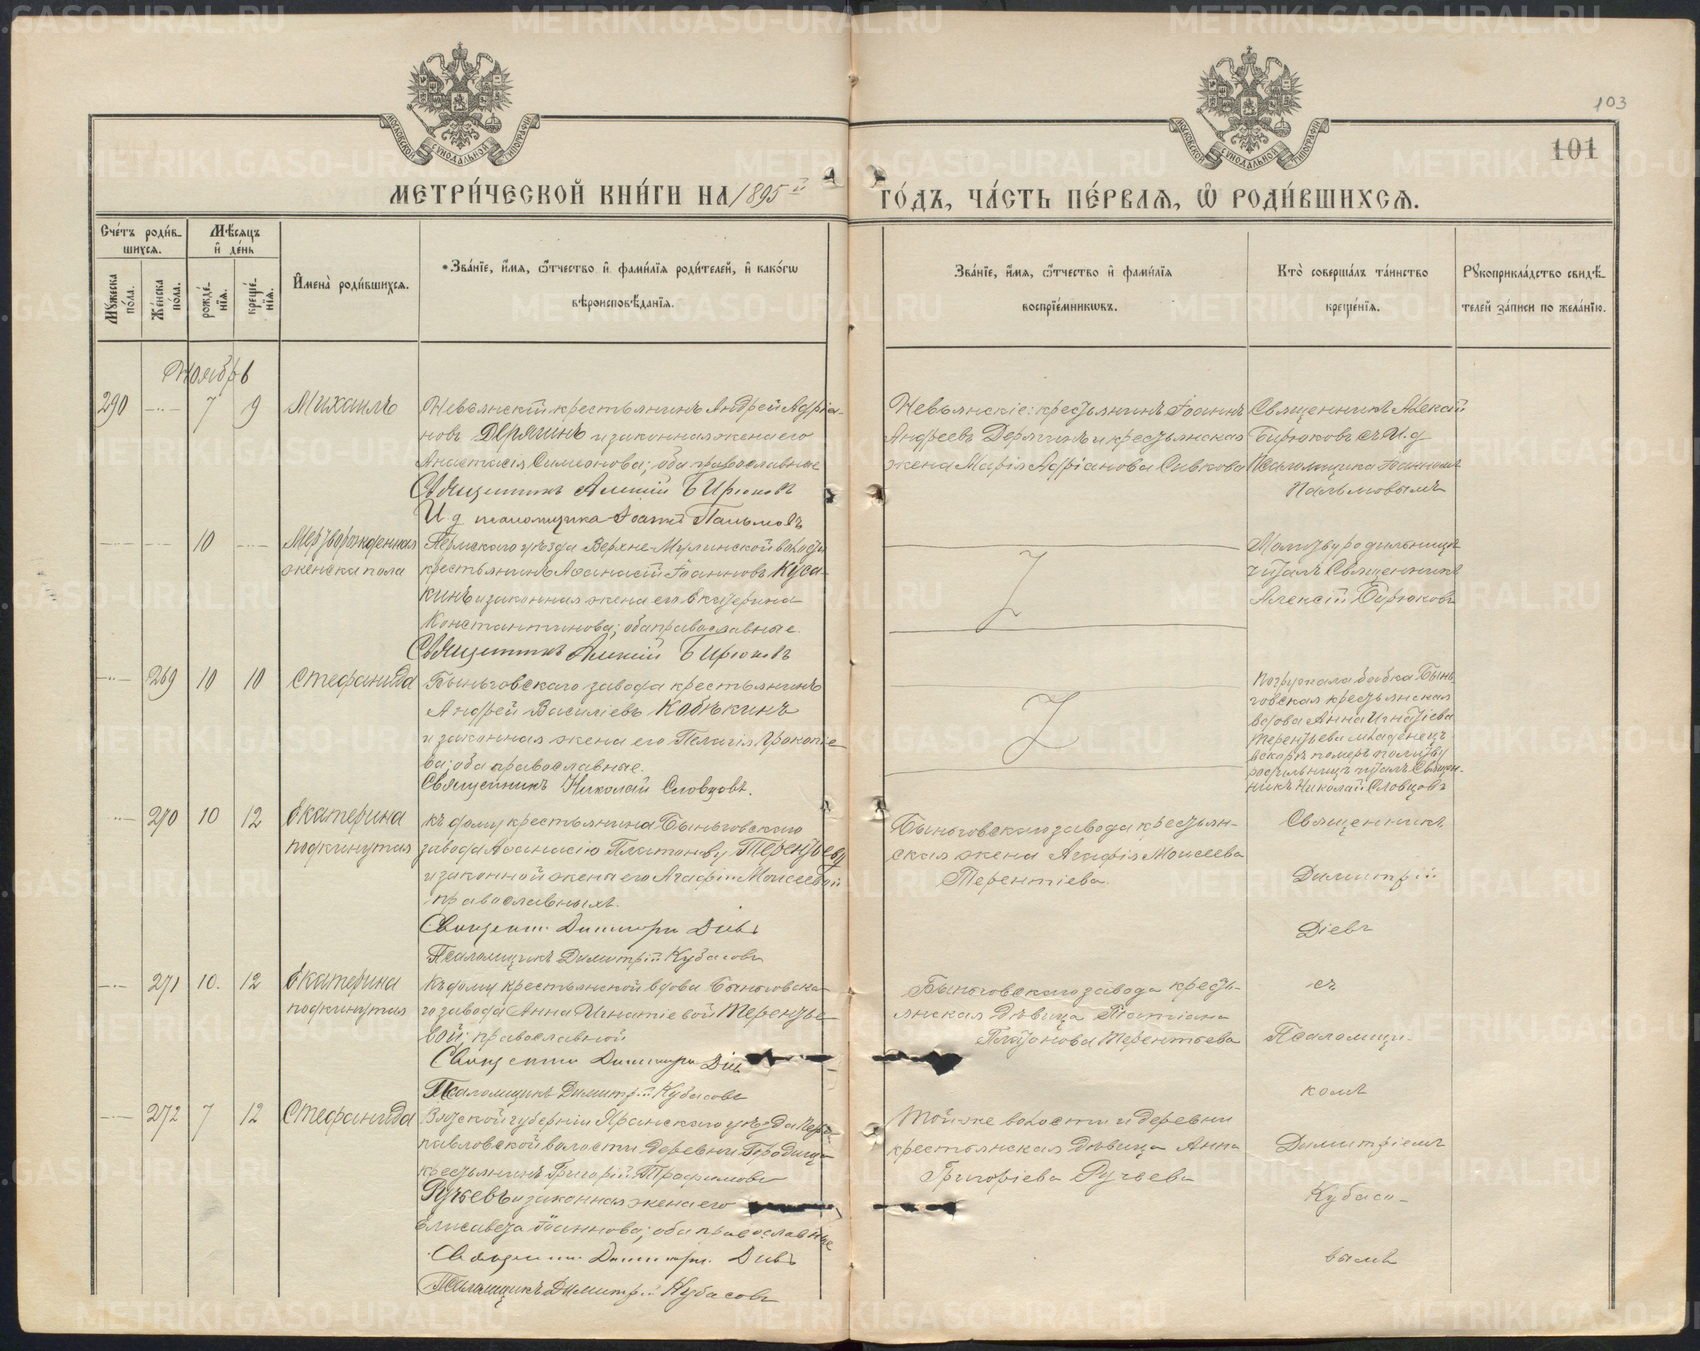 103
101
МОСКОВСКОЙ СѴНОДАЛЬНОЙ ТИПОГРАФІИ
МОСКОВСКОЙ СѴНОДАЛЬНОЙ ТИПОГРАФІИ
МЕТРИ́ЧЕСКОЙ КНИ́ГИ НА 1895й
ГО́ДЪ, ЧА́СТЬ ПЕ́РВАЯ, Ѡ РОДИ́ВШИХСЯ.
Сче́тъ роди́в-
шихся.
Мѣ́сяцъ
и҆ де́нь
Му́жеска по́ла.
Же́нска по́ла.
рожде́-
нїя.
креще́-
нїя.
И҆мена̀ роди́вшихся.
Зва́нїе, и҆́мя, ѻ҆́тчество и҆ фами́лїя роди́телей, и҆ како́гѡ
вѣроисповѣ́данїя.
Зва́нїе, и҆́мя, ѻ҆́тчество и҆ фами́лїя
воспрїе́мникѡвъ.
Кто̀ соверша́лъ та́инство
креще́нїя.
Рꙋкоприкла́дство свидѣ́-
телей за́писи по жела́нїю.
Ноябрь
290 7 9 Михаилъ
Невьянскій крестьянинъ Андрей Адріа-
новъ Дерягинъ и законная жена его
Анастасія Симеонова; оба православные
Священникъ Алексій Бирюковъ
И. д. псаломщика Іоаннъ Пальмовъ
Невьянскіе: крестьянинъ Іоаннъ
Андреевъ Дерягинъ и крестьянская
жена Марія Адріанова Сивкова
Священникъ Алексій
Бирюковъ съ И. д.
Псаломщика Іоанномъ
Пальмовымъ
10 Мертворожденная
женска пола
Пермскаго уѣзда Верхне-Муллинской волости
крестьянинъ Аѳанасій Іоанновъ Куса-
кинъ и законная жена его Екатерина
Константинова; оба православные.
Священникъ Алексій Бирюковъ
Молитву родильницѣ
читалъ Священникъ
Алексій Бирюковъ
269 10 10 Стефанида
Быньговскаго завода крестьянинъ
Андрей Василіевъ Кобѣкинъ
и законная жена его Пелагія Прокопіе-
ва; оба православные.
Священникъ Николай Словцовъ.
Погружала бабка Бынь
говская крестьянская
вдова Анна Игнатіева
Терентьева младенецъ
вскорѣ померъ молитву
родильницѣ читалъ Священ-
никъ Николай Словцовъ
270 10 12 Екатерина
подкинутая
къ дому крестьянина Быньговскаго
завода Аѳанасію Платонову Терентьеву
и законной жене его Агафіи Моисеевой
православныхъ.
Священ. Димитрій Діевъ
Псаломщикъ Димитрій Кубасовъ
Быньговскаго завода крестьян-
ская жена Агафія Моисеева
Терентіева.
Священникъ
Димитрій
Діевъ
271 10. 12 Екатерина
подкинутая
Къ дому крестьянской вдова Быньговска-
го завода Анна Игнатіевой Терентье
вой; православной
Димитрій Діев
Псаломщикъ Димитрій Кубасовъ
Быньговскаго завода кресть-
янская дѣвица Татіана
Платонова Терентьева
съ
Псаломщи-
комъ
272 7 12 Стефанида
Вятской губерніи Яранскаго уѣзда Петро-
павловской волости деревни Городища
крестьянинъ Григорій Трофимовъ
Ручьевъ и законная жена его
Елисавета Іоаннова; оба православные
Димитрій Діевъ
Псаломщикъ Димитрій Кубасовъ
Той же волости и деревни
крестьянская дѣвица Анна
Григоріева Ручьева
Димитріемъ
Кубасо-
вымъ